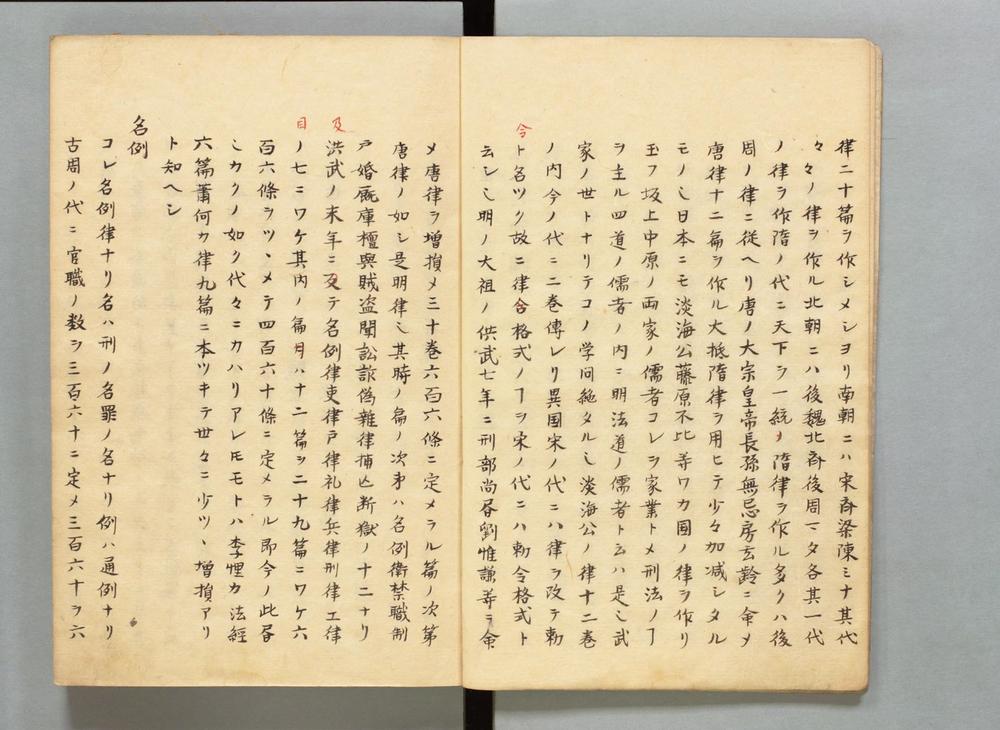 律二十篇ヲ作シメシヨリ南朝ニハ宋斉梁陳ミナ其代
々々ノ律ヲ作ル北朝ニハ後魏北斉後周マタ各其一代
ノ律ヲ作隋ノ代ニ天下ヲ一統メ隋律ヲ作ル多クハ後
周ノ律ニ従ヘリ唐ノ大宗皇帝長孫無忌房玄齢ニ命メ
唐律十二篇ヲ作ル大抵隋律ヲ用ヒテ少々加減シタル
モノ也日本ニモ淡海公藤原不比等ワカ国ノ律ヲ作リ
玉フ坂上中原ノ両家ノ儒者コレヲ家業トメ刑法ノヿ
ヲ主ル四道ノ儒者ノ内ニ明法道ノ儒者ト云ハ是也武
家ノ世トナリテコノ学問絶タル也淡海公ノ律十二巻
ノ内今ノ代ニ二巻傳レリ異国宋ノ代ニハ律ヲ改テ勅
令
ト名ツク故ニ律合格式ノヿヲ宋ノ代ニハ勅令格式ト
云シ也明ノ大祖ノ供武七年ニ刑部尚書劉惟謙等ニ命
メ唐律ヲ増損メ三十巻六百六條ニ定メラル篇ノ次第
唐律ノ如シ是明律也其時ノ篇ノ次第ハ名例衛禁職制
戸婚厩庫檀興賊盗聞訟詐偽雑律捕亡断獄ノ十二ナリ
及
洪武ノ末年ニ反テ名例律吏律戸律礼律兵律刑律工律
目
ノ七ニワケ其内ノ篇月ハ十二篇ヲ二十九篇ニワケ六
百六條ヲツヽメテ四百六十條ニ定メラル即今ノ此書
也カクノ如ク代々ニカハリアレ𪜈モトハ李悝カ法經
六篇蕭何カ律九篇ニ本ツキテ世々ニ少ツヽ増損アリ
ト知ヘシ
名例
コレ名例律ナリ名ハ刑ノ名罪ノ名ナリ例ハ通例ナリ
古周ノ代ニ官職ノ数ヲ三百六十ニ定メ三百六十ヲ六